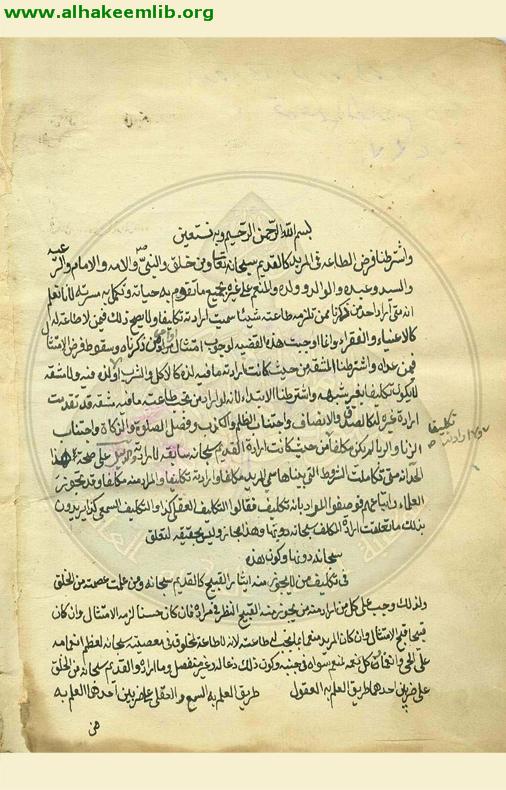 www.alhakeemlib.org
بسم الله الرحمن الرحيم وبه نستعين
واشترطنا فرض الطاعة في المريد كالقديم سبحانه تعالى من خلق والنبي ص والامه والامام والرعيه
والسيد وعبده والوالد وولده والمنعم على غيره بجميع ما تقوم به حياته وتكمل به مسرته لانا نعلم
انه متى أراد احد من ذكرنا من تلزمه طاعته شيئا سميت ارادته تكليفا ولا يصح ذلك فيمن لا طاعة له
كالاغنياء والفقراء وانما اوجبت هذه القضيه لوجوب امتثال من ذكرناه وسقوط فرض الامتثال
فيمن عداه واشترطنا المشقه من حيث كانت ارادة ما فيه لذة كالاكل والشرب ولا مشقه
لا يكون تكليفا بغير شبهه واشترطنا الابتداء لانه لو اراد من تجب طاعته ما فيه مشقه قد تقدمت
ارادة غيره له كالصدق والانصاف واجتناب الظلم والكذب وفعل الصلوة والزكاة واجتناب
الزنا والربا لم يكن مكلفا من حيث كانت ارادة القديم سبحانه سابقه لارادته على صحة هذا
الحد انه متى تكاملت الشروط التي بيناها سمي المريد مكلفا وارادته تكليفا والمراد منه مكلفا وقد تجوز
العلماء فوصفوا المراد بانه تكليف فقالوا التكليف العقلي كذا والتكليف السمعي كذا يريدون
بذلك ما تعلقت ارادة المكلف سبحانه دونها وهذا مجاز وليس بحقيقه لتعلق
سبحانه دونها وكون هذه
في تكليف من لا يجوز منه ايثار القبيح كالقديم سبحانه ومن علمت عصمته من الخلق
ولذلك وجب على كل من اراد منه من يجوز منه القبيح النظر في مراده فان كان حسنا لزمه الامتثال وان كان
قبيحا قبح الامتثال وان كان المريد منعما تجب طاعته لانه لا طاعة لمخلوق في معصيته سبحانه لعظم انعامه
على الحي كل نعمه لمنعم سواه في جنبه وكون ذلك غير منفصل وما اراده القديم سبحانه من الخلق
على ضربين احدهما طريق العلم به العقول طريق العلم به السمع والعقلي على ضربين احدهما العلم به
من
تكليفا